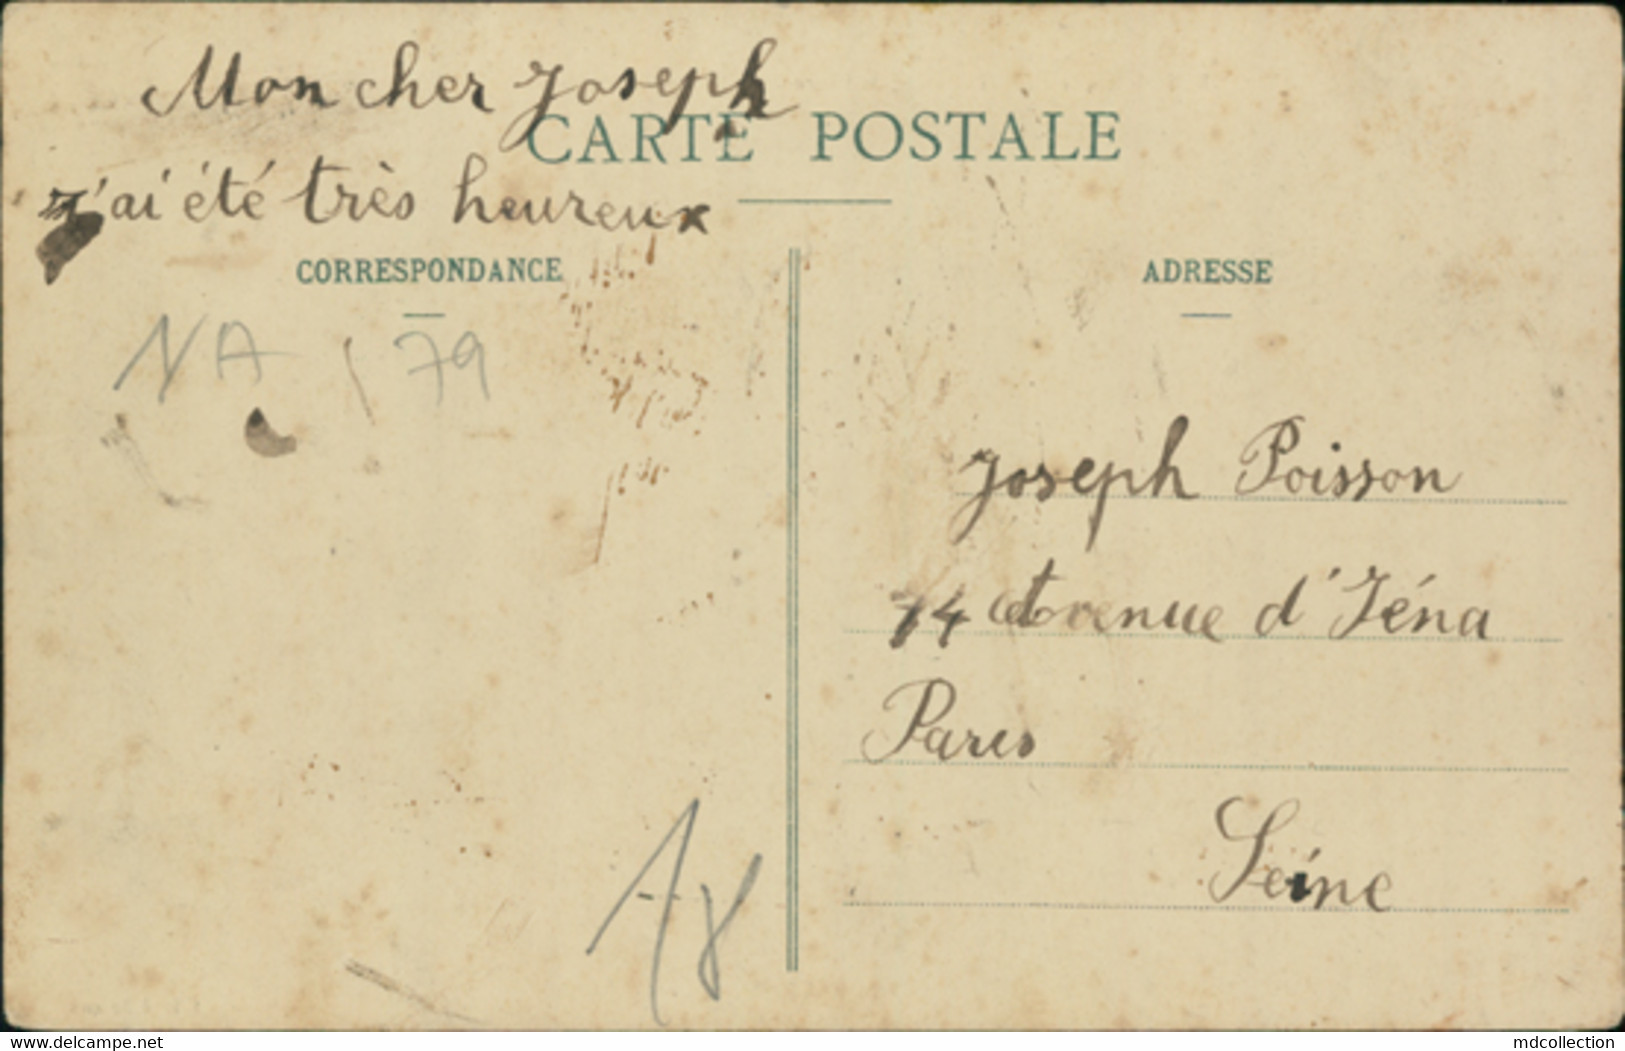 Mon cher Joseph
CARTE POSTALE
j'ai été très heureux
CORRESPONDANCE
ADRESSE
NA 179
Joseph Poisson
74 Avenue d'Iéna
Paris
Seine
my-online-collection.com
mdcollection